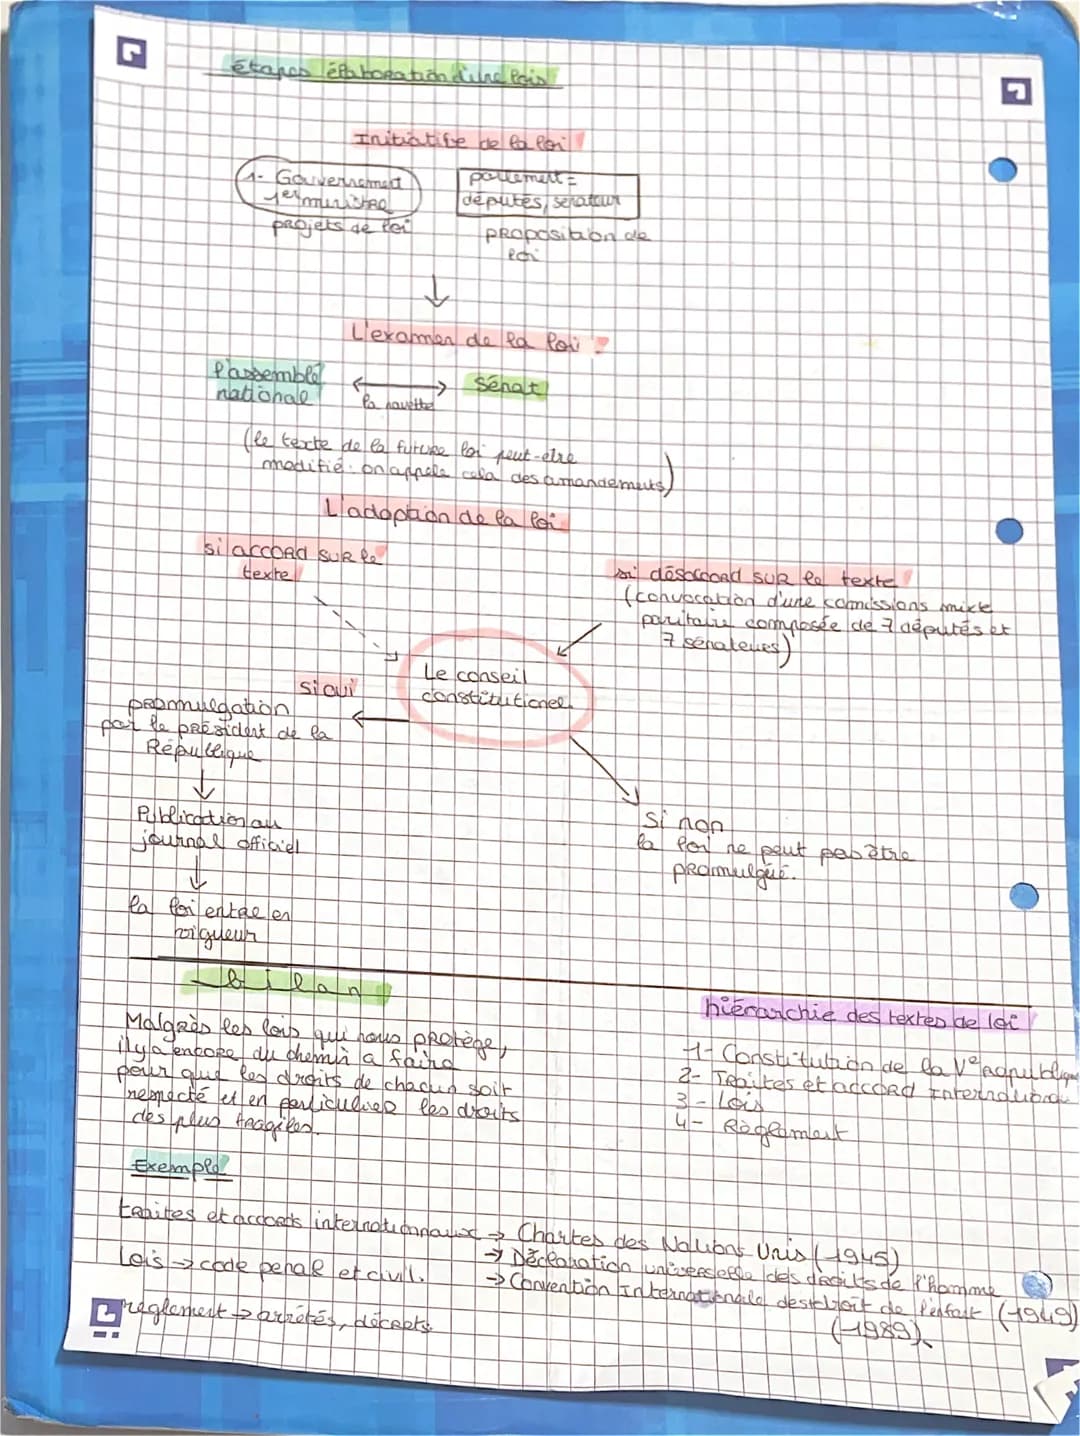 étapes élaboration d'une lois
Initiatife de la loi
1- Gouvernement
1er ministre
projets de loi
parlement =
députés, sénateur
proposition de
loi
↓
L'examen de la loi :
l'assemblé
national
↔
la navette
Sénat
(le texte de la future loi peut-etre
modifié : on appele cela des amandements)
L'adoption de la loi
si accord sur le
texte
si désaccord sur le texte
(convocation d'une comissions mixte
paritaire composée de 7 députés et
7 sénateurs)
Le conseil
constitutionel.
si oui
promulgation
par le président de la
République
↓
Publication au
journal officiel
↓
la loi entre en
vigueur
si non
la loi ne peut pas être
promulguée.
bilan
Malgrès les lois qui nous protège,
il y a encore du chemin a faire
pour que les droits de chacun soit
respecté et en particulier les droits
des plus fragiles.
hiérarchie des textes de loi
1- Constitution de la Ve republique
2- Traites et accord International
3- Lois
4- Règlement
Exemple
traites et accords internationnaux → Chartes des Nations Unis (1945)
→ Déclaration universelle des droits de l'homme
(1949)
→ Convention Internationale des droit de l'enfant
(1989).
Lois → code penal et civil.
reglement → arrétés, décrets